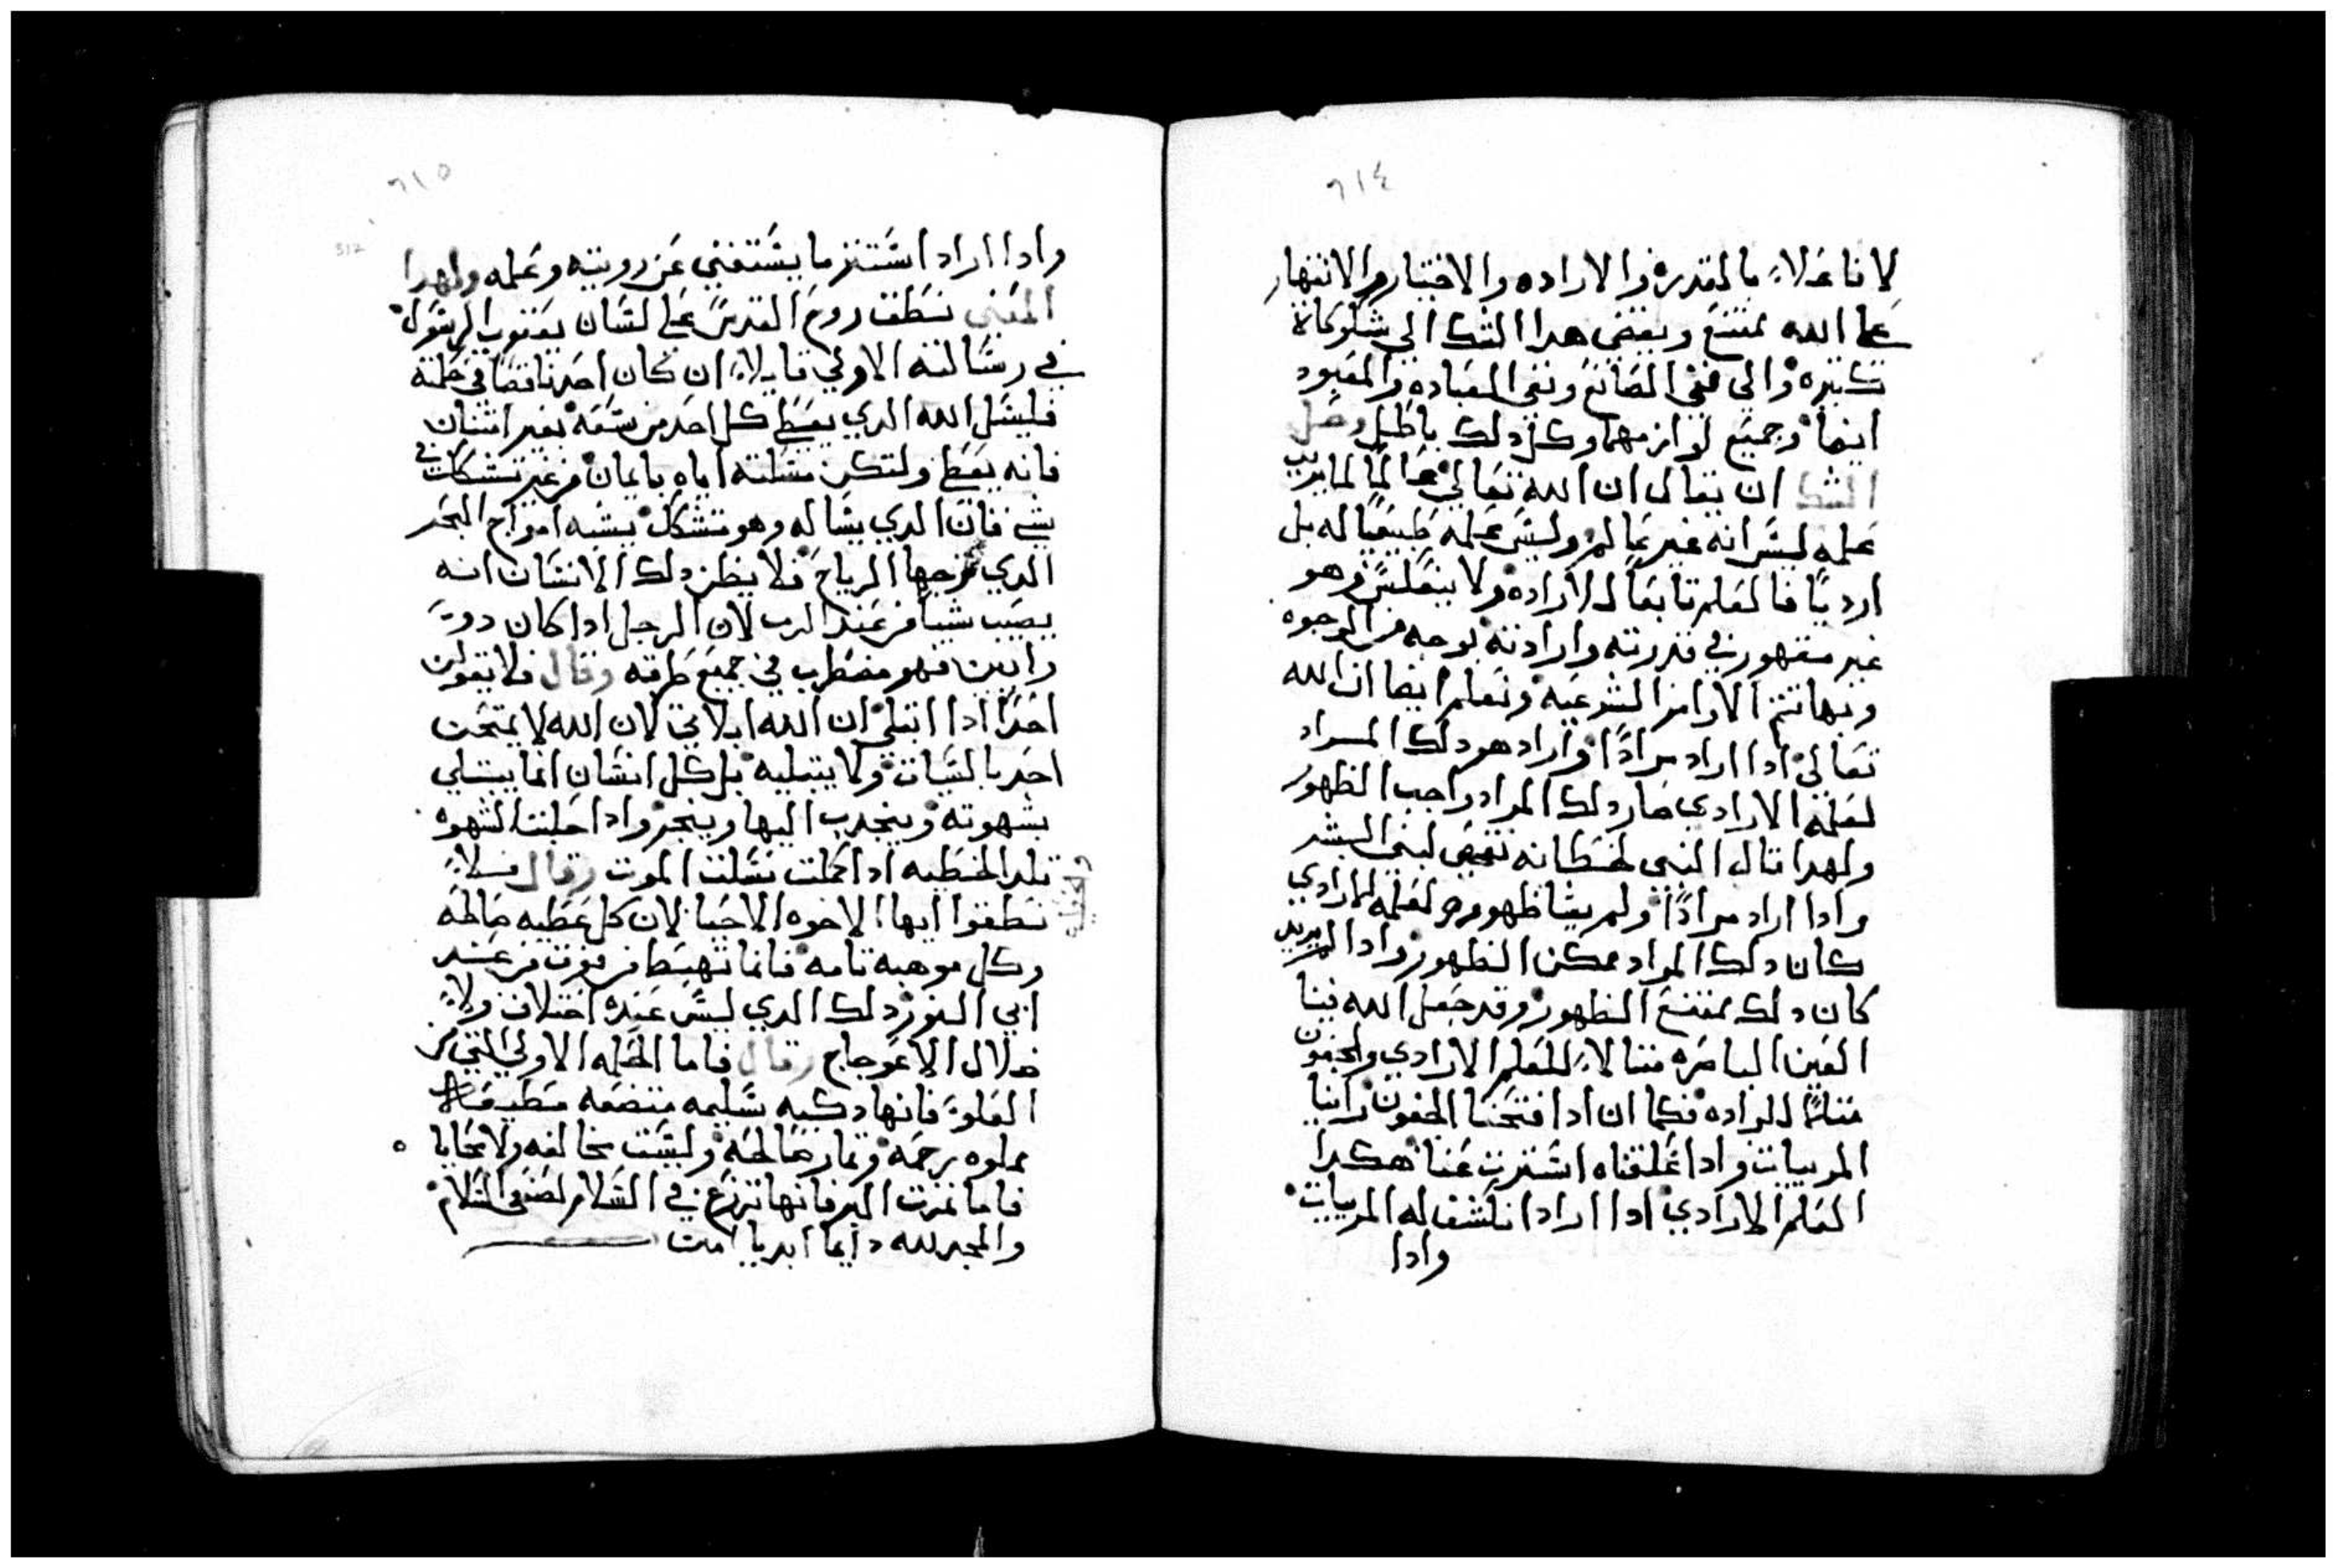 ٦١٤
لا فاعلاً بالقدره والاراده والاختيار والانتهار
على الله ممتنع ويفضى هدا الشك الى شكوكاة
كثيره والى نفى الصانع ونفى العباده والمعبود
ايضا وجميع لوازمهما وكل دلك باطل وحل
الشك ان يقال ان الله تعالى عالماً لما يريد
علمه ليس انه غير عالم وليس علمه طبيعياً له بل
ارديًا فالعلم تابعاً للاراده ولا ينعكس وهو
غير مقهور في قدرته وارادته بوجه من الوجوه
وبها تتم الاوامر الشرعيه ونعلم ايضا ان الله
تعالى ادا اراد مراداً واراد هو دلك المراد
لعلمه الارادي صار دلك المراد واجب الظهور
ولهدا قال النبى لخطانه لبنى البشر
وادا اراد مراداً ولم يشا ظهوره لعلمه الارادي
كان دلك المراد ممكن الظهور وادا لم يريد
كان دلك ممتنع الظهور وقد جعل الله فينا
العين الباصره مثالاً للعلم الارادي والجفون
مثالاً للاراده فكما ان ادا فتحنا الجفون راينا
المرييات وادا غلقناه استترت عنا هكدا
العلم الارادي ادا اراد انكشف له المرييات
وادا
٦١٥
312
وادا اراد استتر ما يستغنى عن رويته وعلمه ولهدا
المعنى نطقت روح القدس على لسان يعقوب الرسول
في رسالته الاولى قايلاً ان كان احد ناقصا في حكمة
فليسل الله الدي يعطي كل احد من سعة بغير امتنان
فانه يعطى ولتكن مسلته اياه بايمان من غير تشكك في
شي فان الدي يساله وهو متشكك يشبه امواج البحر
الدي تزجها الرياح فلا يظن دلك الانسان انه
يصيب شيا من عند الرب لان الرجل ادا كان دو
رايين فهو مضطرب في جميع طرقه وقال فلا يقولن
احدًا ادا ابتلى ان الله ابلاني لان الله لا يمتحن
احد بالسيات ولا يبتليه بل كل انسان انما يبتلي
بشهوته وينجدب اليها وينجر وادا حبلت الشهوه
تلد الخطيه ادا كملت نسلت الموت وقال فلا
تطغوا ايها الاخوه الاحبا لان كل عطيه صالحه
وكل موهبه تامه فانما تهبط من فوق من عند
ابي النور دلك الدي ليس عنده اختلاف ولا
ضلال الاعوجاج وقال فاما الحكمه الاولى التي من
العلو فانها دكيه سليمه متضعه مطيعه
مملوه رحمه وثمار صالحه وليست مخالفه ولا تحابا
فاما ثمرت البر فانها تزرع في السلام لصنعى السلام
والمجد لله دايما ابديا امين